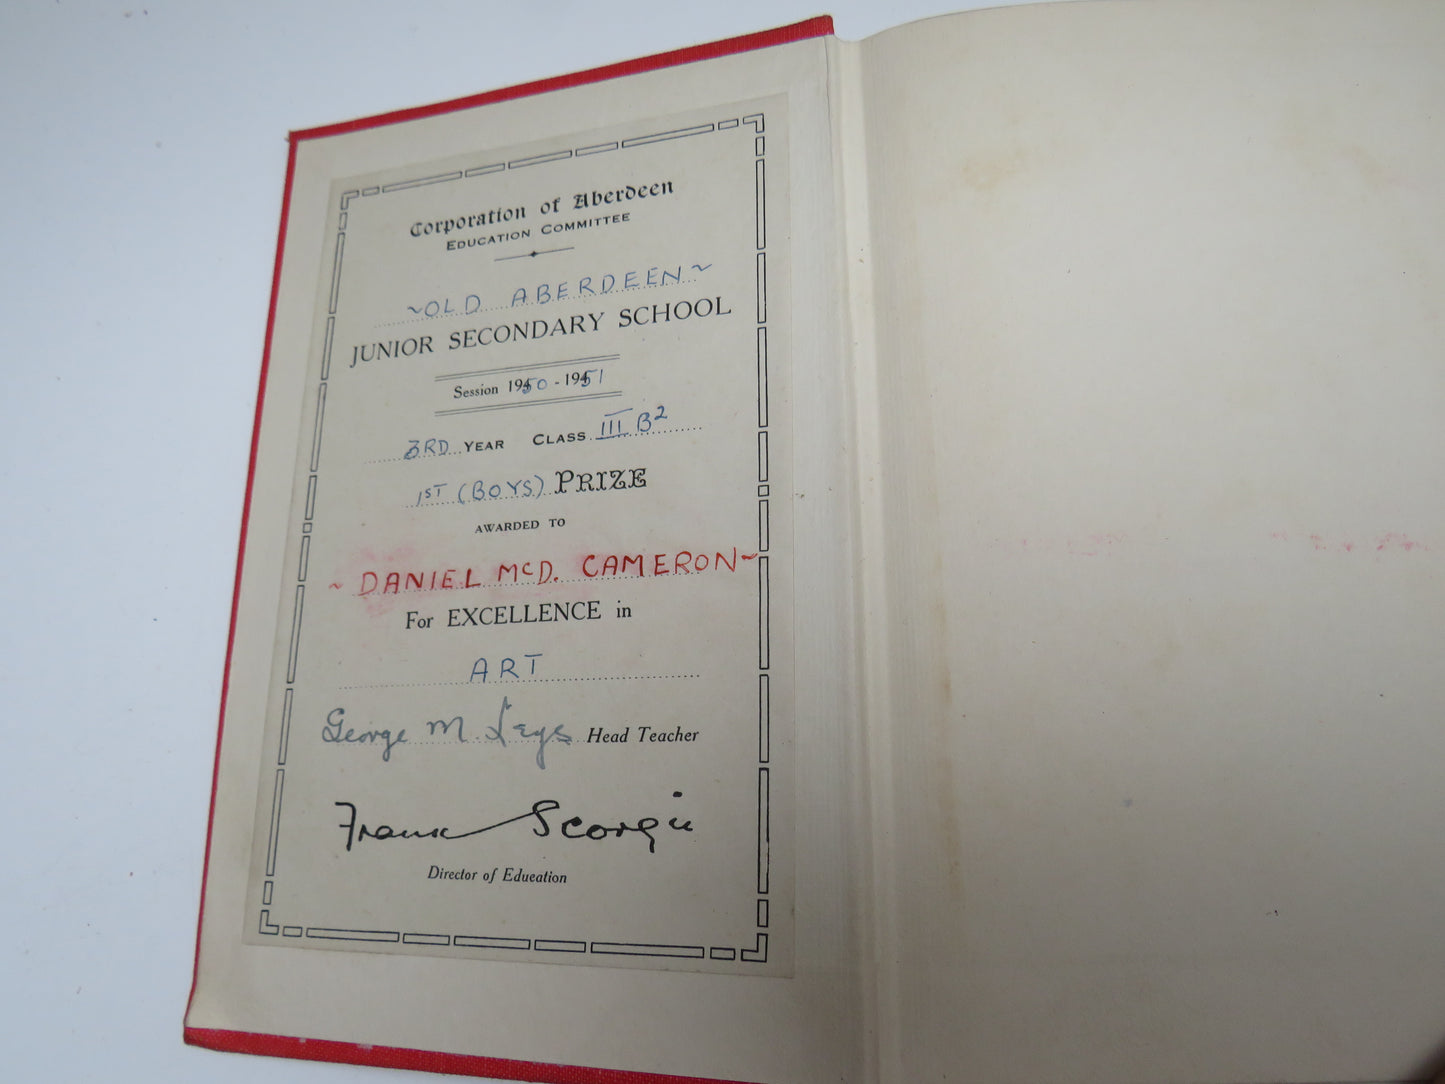 Corporation of Aberdeen
EDUCATION COMMITTEE
~ OLD ABERDEEN ~
JUNIOR SECONDARY SCHOOL
Session 1950 - 1951
3RD YEAR CLASS III B2
1ST (BOYS) PRIZE
AWARDED TO
~ DANIEL McD. CAMERON ~
For EXCELLENCE in
ART
George M. Leys Head Teacher
Frank Scorgie
Director of Education